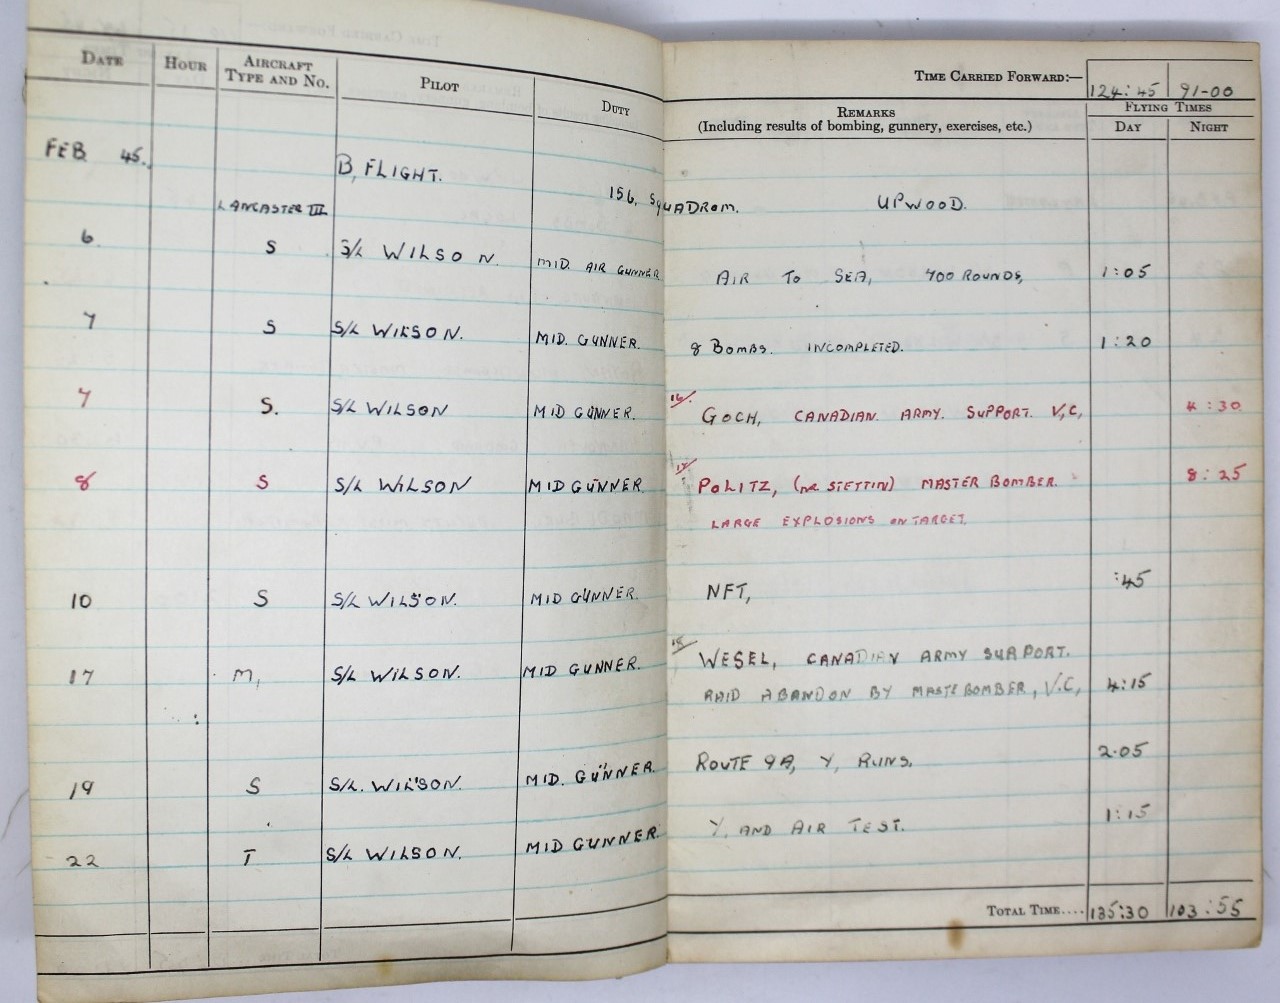 TIME CARRIED FORWARD:— 124:45 91-00
DATE HOUR AIRCRAFT TYPE AND No. PILOT DUTY REMARKS (Including results of bombing, gunnery, exercises, etc.) FLYING TIMES DAY NIGHT
FEB 45. B, FLIGHT. 156, SQUADROM. UPWOOD.
LANCASTER III
6. S S/L WILSON. MID. AIR GUNNER AIR TO SEA, 700 ROUNDS, 1:05
7 S S/L WILSON. MID. GUNNER. 8 BOMBS. INCOMPLETED. 1:20
7 S. S/L WILSON MID GUNNER. 16/. GOCH, CANADIAN. ARMY. SUPPORT. V,C, 4:30
8 S S/L WILSON MID GUNNER. 17/ POLITZ, (NR STETTIN) MASTER BOMBER. 8:25
LARGE EXPLOSIONS ON TARGET.
10 S S/L WILSON. MID GUNNER. NFT, :45
17 M, S/L WILSON. MID GUNNER. 18/ WESEL, CANADIAN ARMY SUPPORT.
RAID ABANDON BY MASTEBOMBER, V.C, 4:15
19 S S/L. WILSON. MID. GUNNER. ROUTE 9A, Y, RUNS, 2.05
22 T S/L WILSON. MID GUNNER. Y, AND AIR TEST. 1:15
TOTAL TIME.... 135:30 103:55